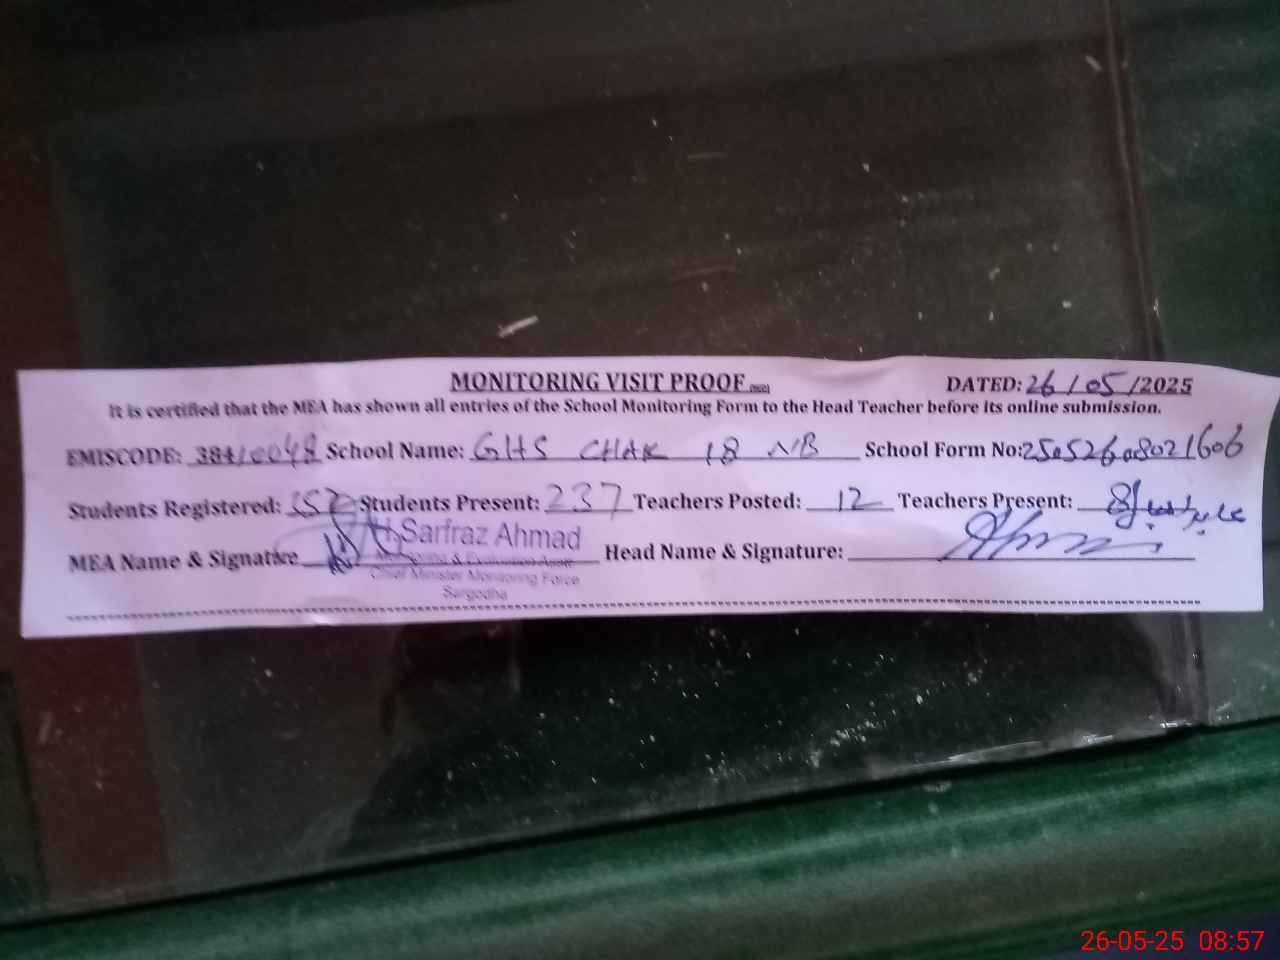 MONITORING VISIT PROOF
DATED: 26/05/2025
It is certified that the MEA has shown all entries of the School Monitoring Form to the Head Teacher before its online submission.
EMISCODE: 38410048 School Name: GHS CHAK 18 NB School Form No:
Students Registered: Students Present: 237 Teachers Posted: 12 Teachers Present: 8
Sarfraz Ahmad
MEA Name & Signature Head Name & Signature:
Monitoring & Evaluation
Chief Minister Monitoring Force
Sargodha
26-05-25 08:57